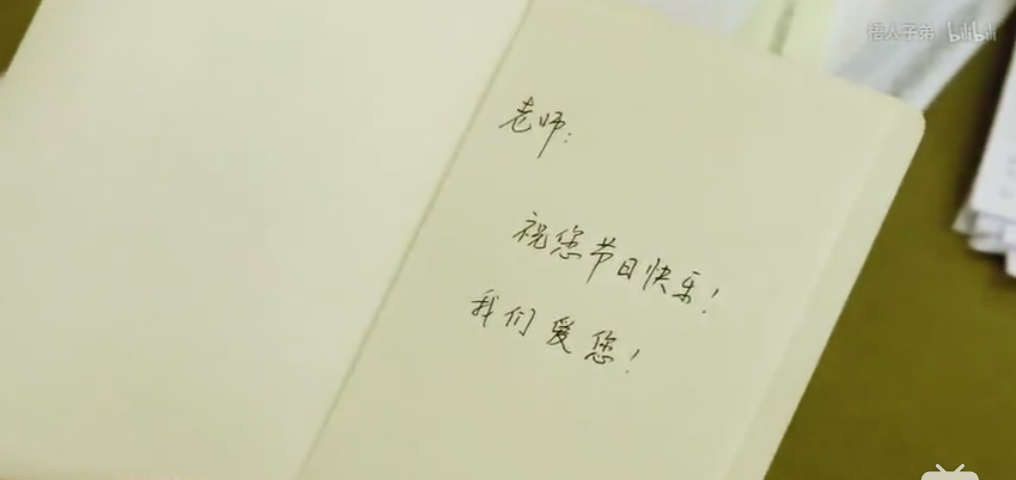 梧人子弟 bilibili
老师:
祝您节日快乐!
我们爱您!